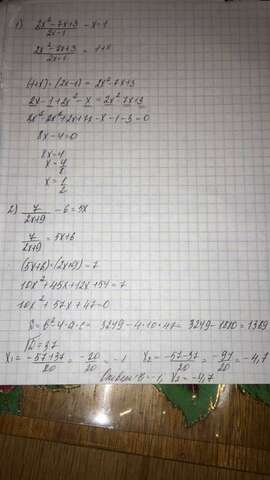 1) (2x²-7x+3)/(2x-1) - x=1
(2x²-7x+3)/(2x-1) = 1+x
(1+x)·(2x-1)= 2x²-7x+3
2x-1+2x²-x=2x²-7x+3
2x²-2x²+2x+7x-x-1-3=0
8x-4=0
8x=4
x=4/8
x=1/2
2) 7/(2x+9) -6=5x
7/(2x+9) =5x+6
(5x+6)·(2x+9)=7
10x²+45x+12x+54=7
10x²+57x+47=0
D=b²-4·a·c= 3249-4·10·47=3249-1880=1369
√D=37
x₁=(-57+37)/20=-20/20=-1 x₂=(-57-37)/20=-94/20=-4,7
-1; x₂=-4,7